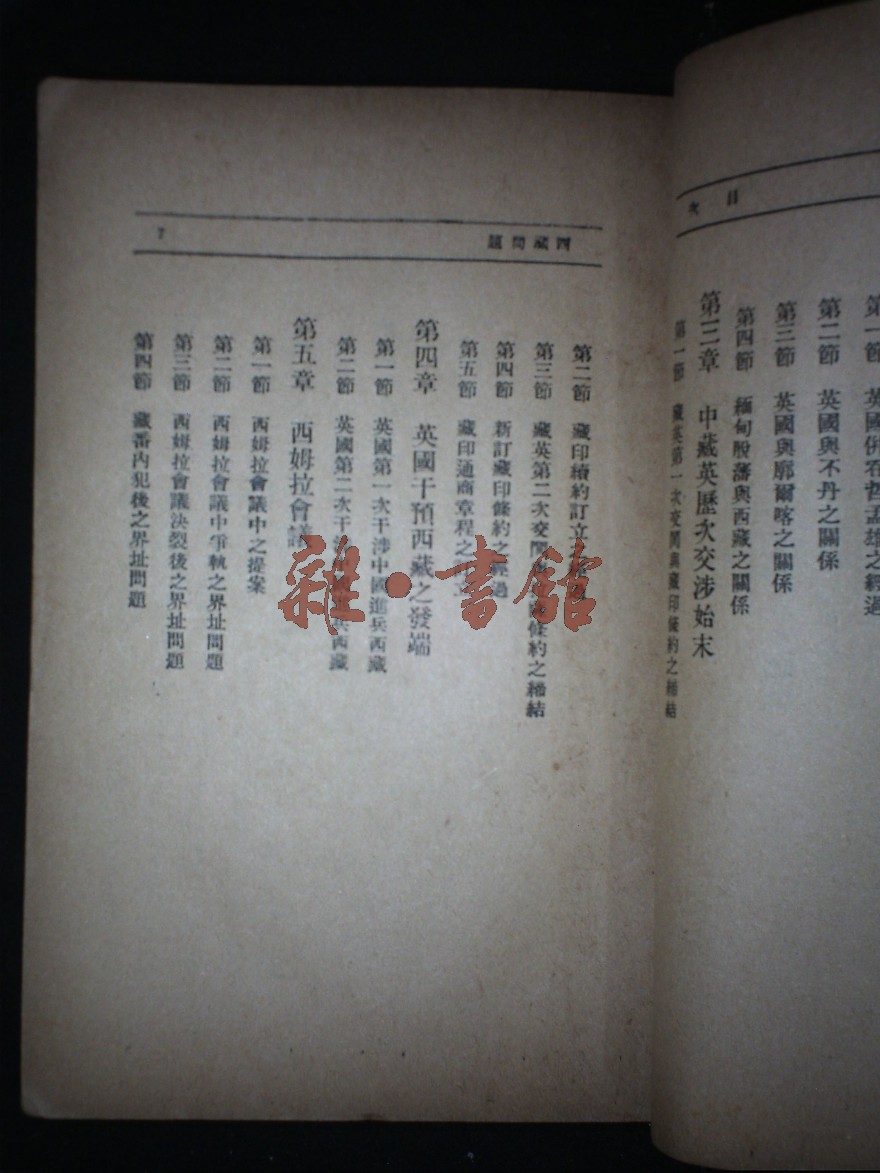 目次
第一節 英國併吞哲孟雄之經過
第二節 英國與不丹之關係
第三節 英國與廓爾喀之關係
第四節 緬甸脫藩與西藏之關係
第三章 中藏英歷次交涉始末
第一節 藏英第一次交鬨與藏印條約之締結
西藏問題
7
第二節 藏印續約訂立
第三節 藏英第二次交鬨 條約之締結
第四節 新訂藏印條約之經過
第五節 藏印通商章程之 立
第四章 英國干預西藏之發端
第一節 英國第一次干涉中國進兵西藏
第二節 英國第二次干涉中國進兵西藏
第五章 西姆拉會議
第一節 西姆拉會議中之提案
第二節 西姆拉會議中爭執之界址問題
第三節 西姆拉會議決裂後之界址問題
第四節 藏番內犯後之界址問題
雜·書館